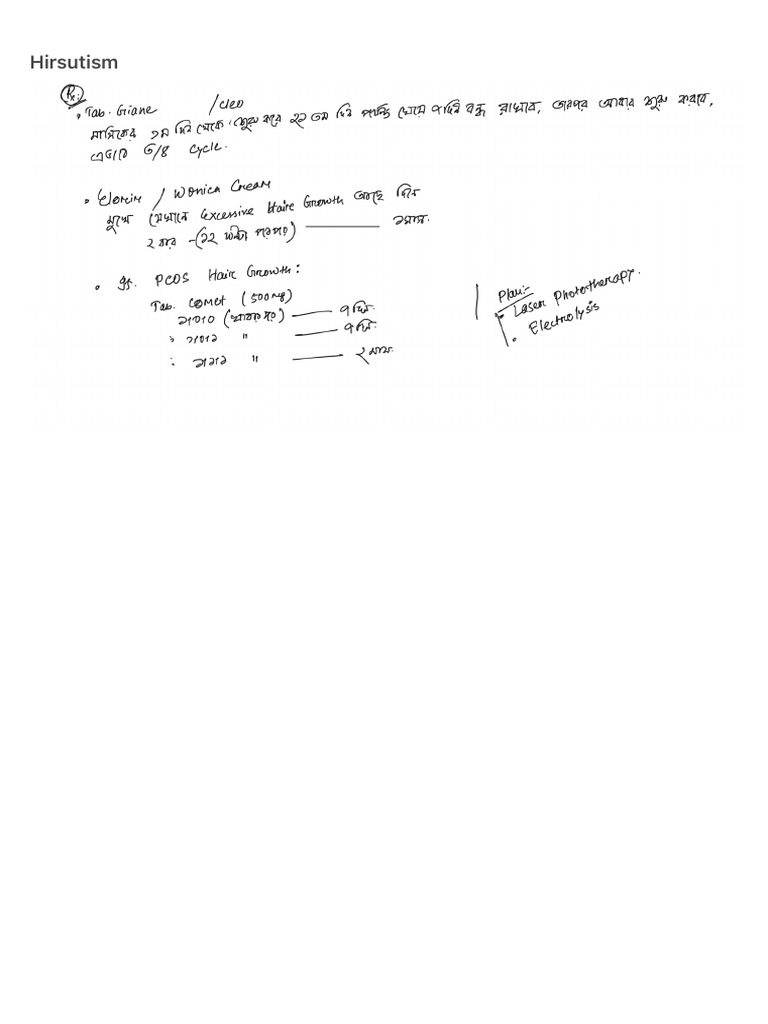 Hirsutism
Rx:
• Tab. Giane / cleo
মাসিকের ১ম দিন থেকে শুরু করে ২১ তম দিন পর্যন্ত খেয়ে ৭ দিন বন্ধ রাখবে, তারপর আবার শুরু করবে,
এভাবে ৩/৪ cycle.
• / Wonica Cream
মুখে যেখানে Excessive Haire Growth আছে দিনে
২ বার -(১২ ঘন্টা পরপর) — ২মাস.
• PCOS Hair Growth:
Tab. Comet (500mg)
১+০+০ (খাবার পর) — ৭ দিন.
: ১+০+১ " — ৭ দিন.
: ১+১+১ " — ২ মাস.
Plan:-
• Laser Phototherapy.
• Electrolysis